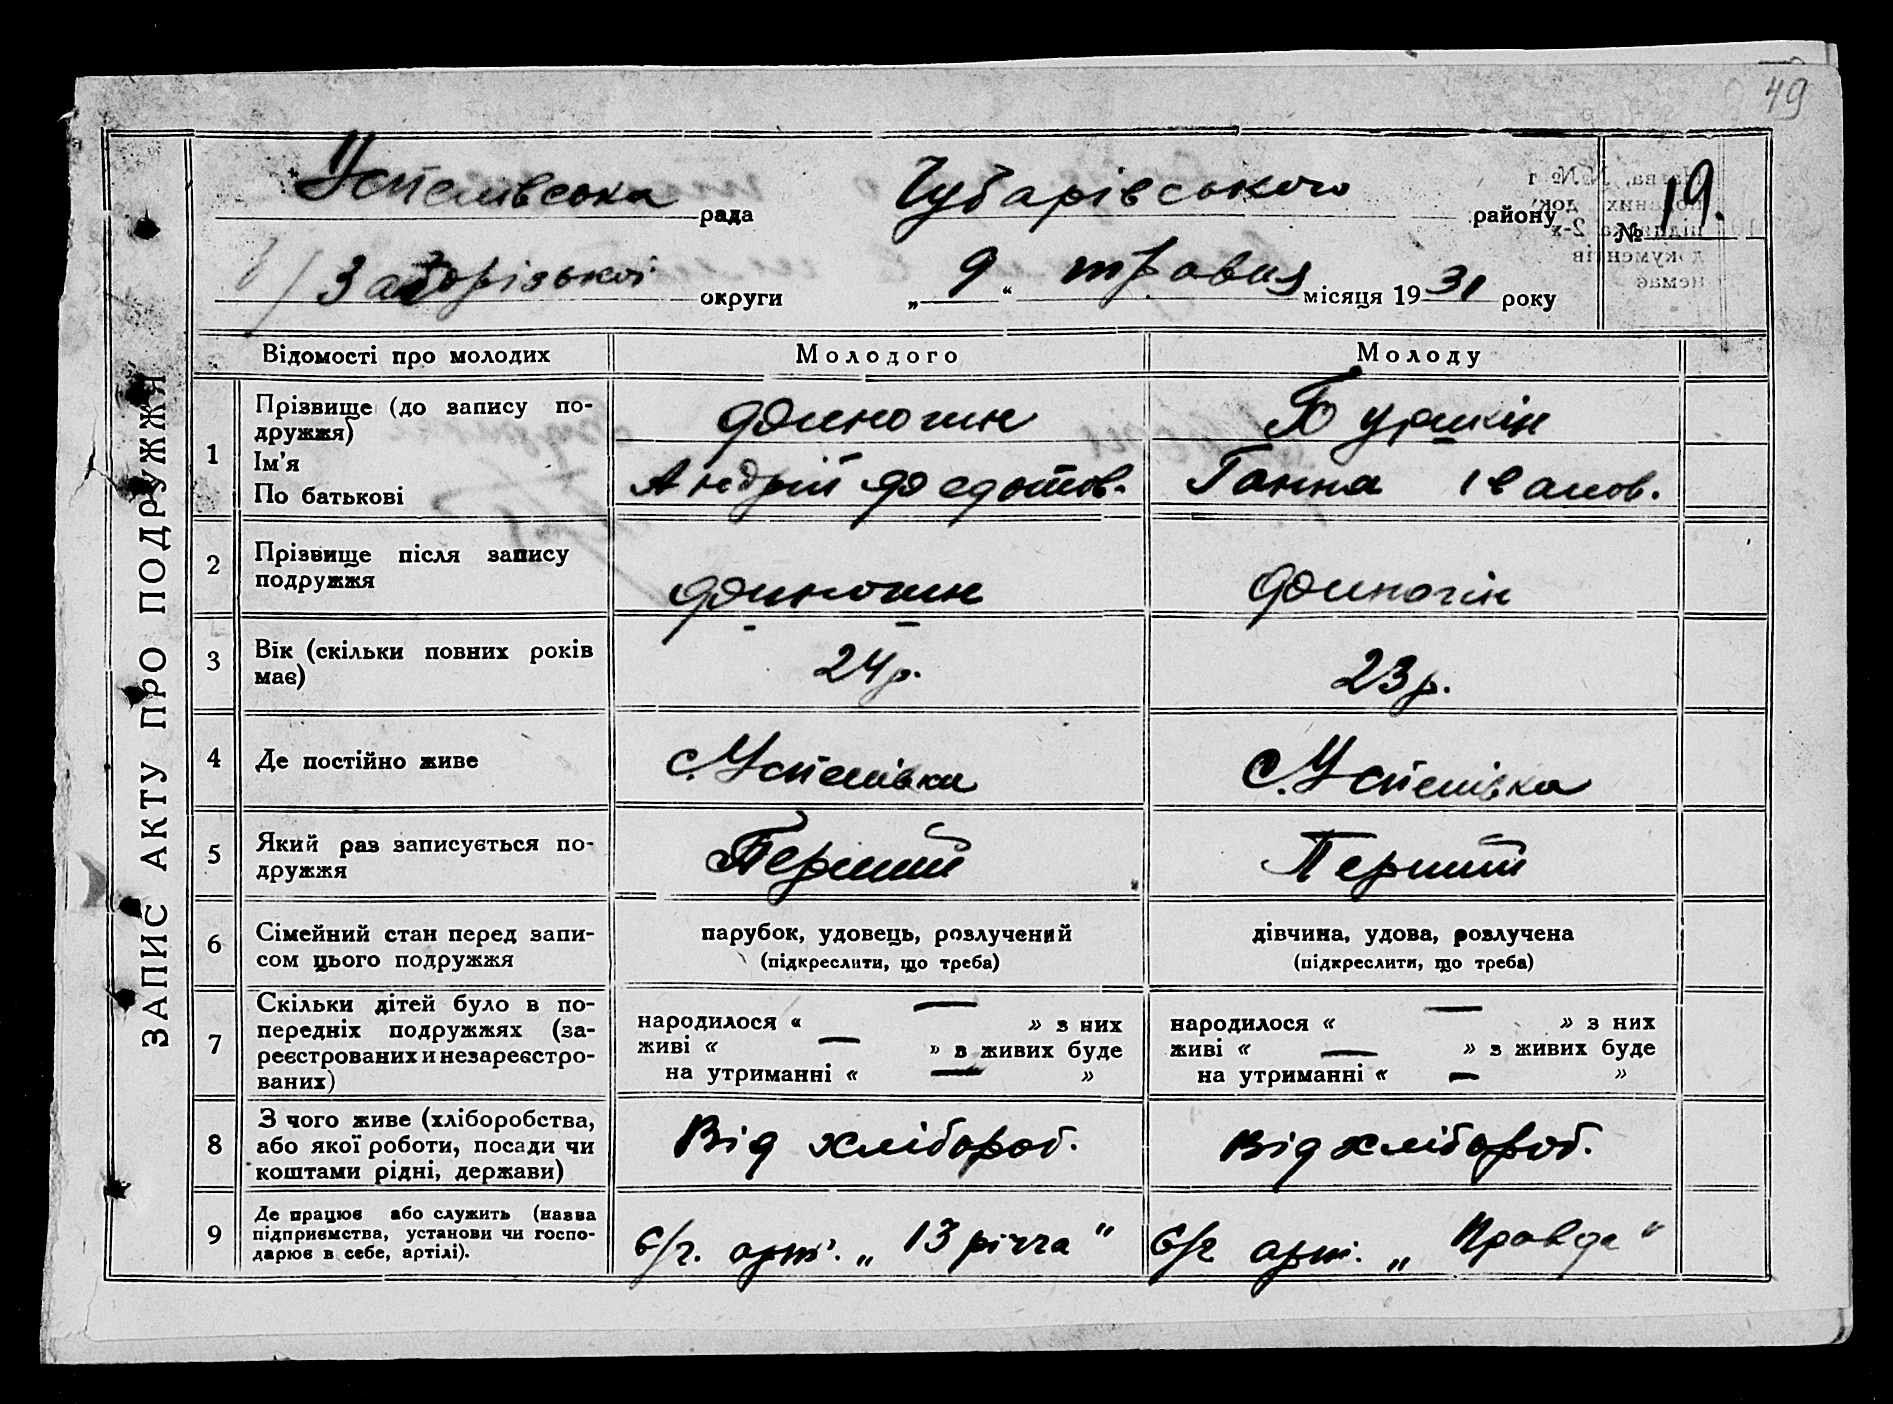 49
ЗАПИС АКТУ ПРО ПОДРУЖЖЯ
Успенівська рада Чубарівського району № 19.
Запорізької округи „ 9 “ травня місяця 1931 року
Відомості про молодих Молодого Молоду
1 Прізвище (до запису по-
дружжя) Финогин Буряшкін
Ім’я
По батькові Андрій Федотов. Ганна Іванов.
2 Прізвище після запису
подружжя Финогин Финогін
3 Вік (скільки повних років
має) 24 р. 23 р.
4 Де постійно живе с. Успенівка с. Успенівка
5 Який раз записується по-
дружжя Перший Перший
6 Сімейний стан перед запи-
сом цього подружжя
парубок, удовець, розлучений
(підкреслити, що треба)
дівчина, удова, розлучена
(підкреслити, що треба)
7 Скільки дітей було в по-
передніх подружжях (за-
реєстрованих и незареєстро-
ваних)
народилося « — » з них
живі « — » з живих буде
на утриманні « — »
народилося « — » з них
живі « — » з живих буде
на утриманні « — »
8 З чого живе (хліборобства,
або якої роботи, посади чи
коштами рідні, держави)
Від хлібороб. Від хлібороб.
9 Де працює або служить (назва
підприємства, установи чи госпо-
дарює в себе, артілі).
с/г. арт. „ 13 річча “ с/г арт. „ Правда “